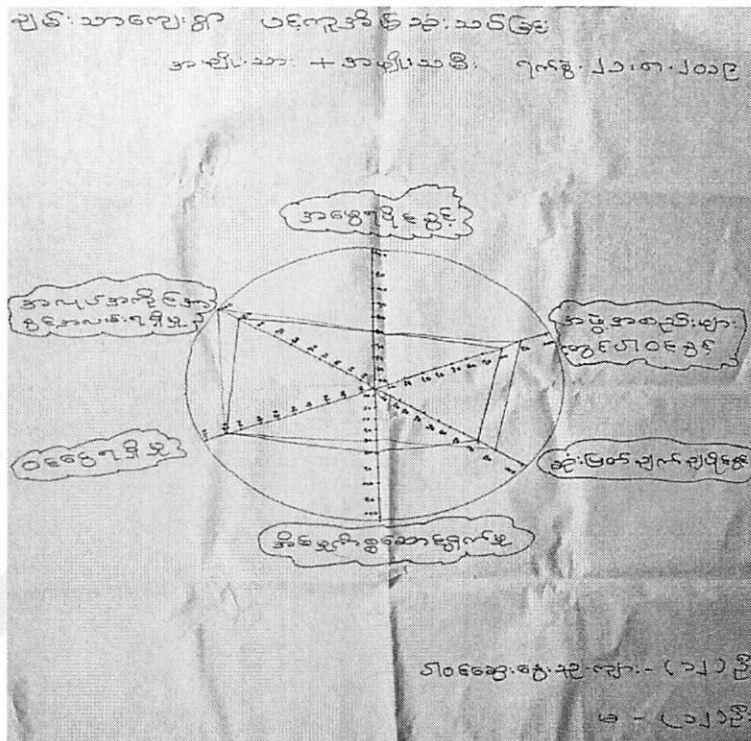 ချမ်းသာကျေးရွာ ပင့်ကူအိမ်သုံးသပ်ခြင်း
အမျိုးသား + အမျိုးသမီး ရက်စွဲ ၂၁.၈.၂၀၁၉
အမွေရပိုင်ခွင့်
အလုပ်အကိုင်အခွင့်အလမ်းရရှိမှု
အဖွဲ့အစည်းများ
တွင်ပါဝင်ခွင့်
ဝင်ငွေရရှိမှု
ဆုံးဖြတ်ချက်ချပိုင်ခွင့်
အိမ်မှုကိစ္စဆောင်ရွက်မှု
ပါဝင်ဆွေးနွေးသူ ကျား - (၁၂) ဦး
မ - (၁၂) ဦး